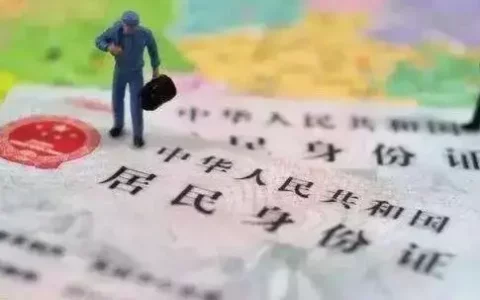 中华人民共和国
民身份证
中华人民共和国
居民身份证